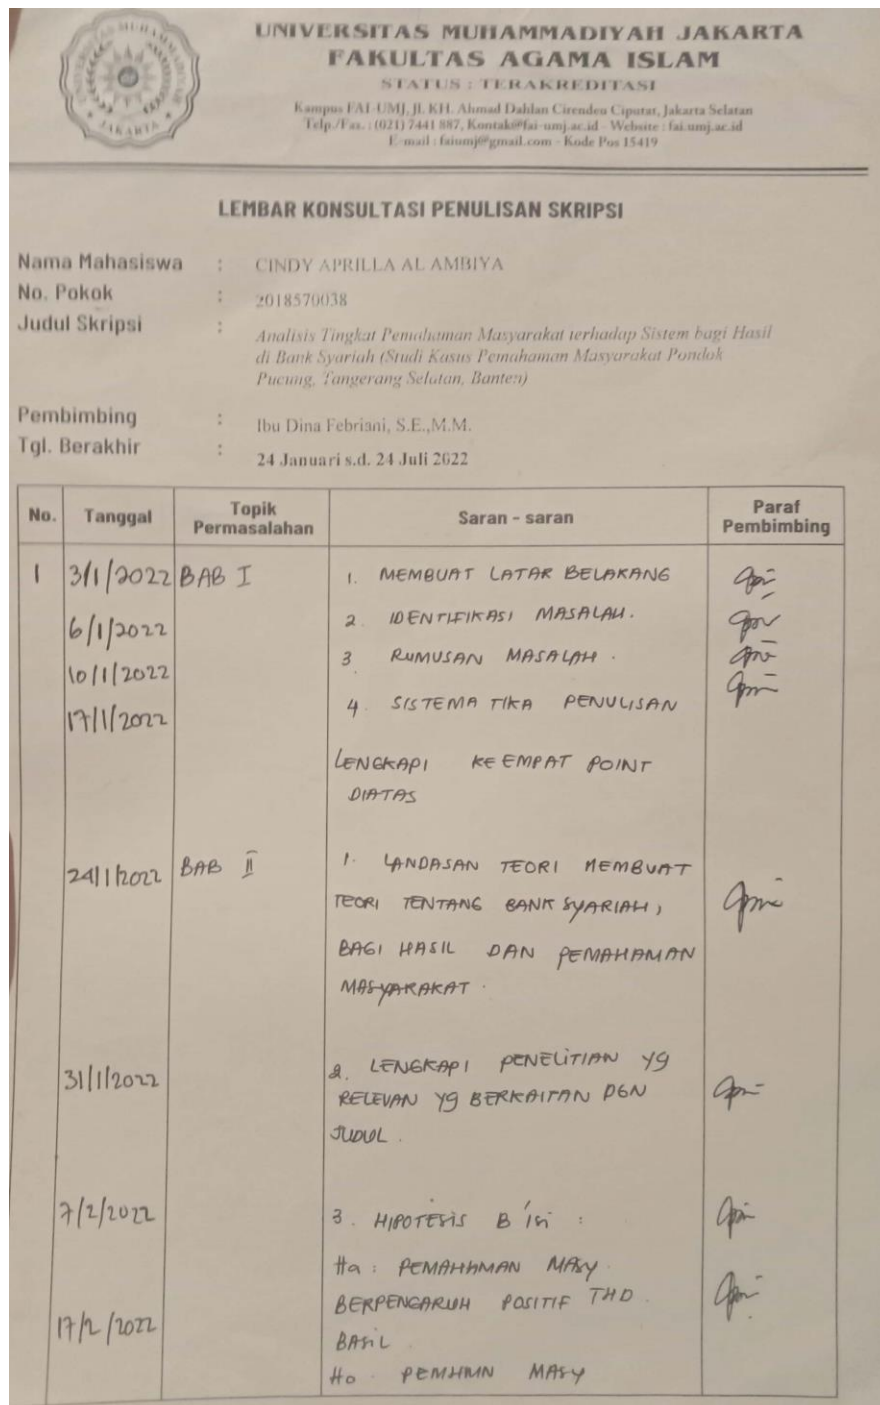 UNIVERSITAS MUHAMMADIYAH JAKARTA
FAKULTAS AGAMA ISLAM
STATUS : TERAKREDITASI
Kampus FAI-UMJ, Jl. KH. Ahmad Dahlan Cirendeu Ciputat, Jakarta Selatan
Telp./Fax. : (021) 7441 887, Kontak@fai-umj.ac.id - Website : fai.umj.ac.id
E-mail : faiumj@gmail.com - Kode Pos 15419
LEMBAR KONSULTASI PENULISAN SKRIPSI
Nama Mahasiswa : CINDY APRILLA AL AMBIYA
No. Pokok : 2018570038
Judul Skripsi : Analisis Tingkat Pemahaman Masyarakat terhadap Sistem bagi Hasil
di Bank Syariah (Studi Kasus Pemahaman Masyarakat Pondok
Pucung, Tangerang Selatan, Banten)
Pembimbing : Ibu Dina Febriani, S.E.,M.M.
Tgl. Berakhir : 24 Januari s.d. 24 Juli 2022
No. Tanggal Topik Permasalahan Saran - saran Paraf Pembimbing
1 3/1/2022 BAB I 1. MEMBUAT LATAR BELAKANG
6/1/2022 2. IDENTIFIKASI MASALAH.
10/1/2022 3. RUMUSAN MASALAH.
17/1/2022 4. SISTEMATIKA PENULISAN
LENGKAPI KE EMPAT POINT
DIATAS
24/1/2022 BAB II 1. LANDASAN TEORI MEMBUAT
TEORI TENTANG BANK SYARIAH,
BAGI HASIL DAN PEMAHAMAN
MASYARAKAT.
31/1/2022 2. LENGKAPI PENELITIAN YG
RELEVAN YG BERKAITAN DGN
JUDUL.
7/2/2022 3. HIPOTESIS B'isi :
Ha : PEMAHAMAN MASY.
BERPENGARUH POSITIF THD.
17/2/2022 BASIL.
Ho. PEMHMN MASY